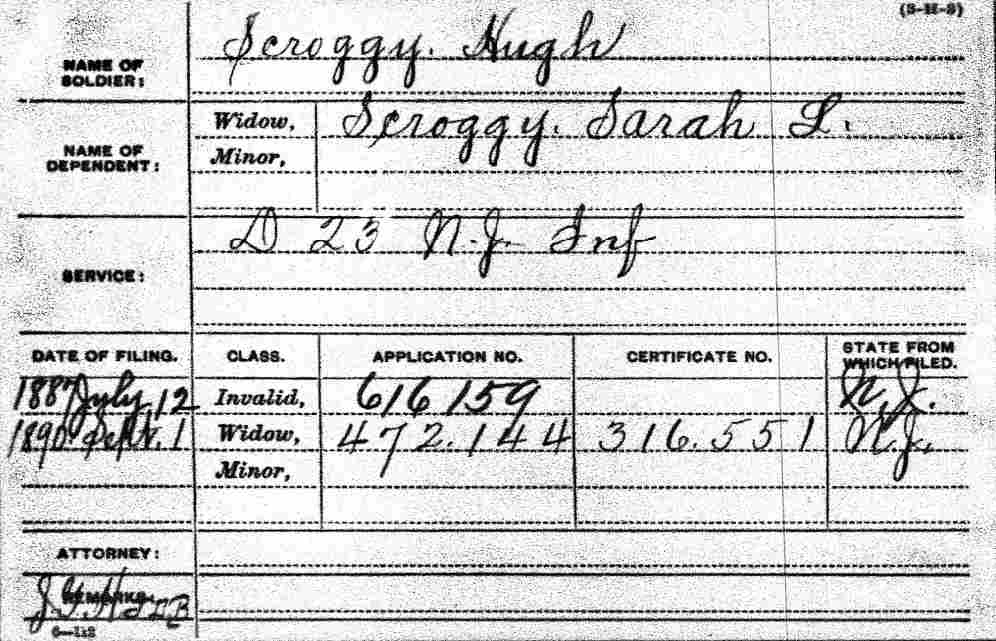 (3-H-3)
NAME OF SOLDIER: Scroggy. Hugh
NAME OF DEPENDENT: Widow, Scroggy. Sarah L.
Minor,
SERVICE: D 23 N.J. Inf
DATE OF FILING. CLASS. APPLICATION NO. CERTIFICATE NO. STATE FROM WHICH FILED.
1887 July 12 Invalid, 616159 N.J.
1890 Sept. 1 Widow, 472.144 316.551 N.J.
Minor,
ATTORNEY:
REMARKS